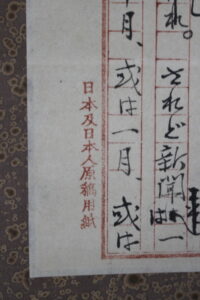 れ。されど新聞は一
月、或は一月、或は
日本及日本人原稿用紙